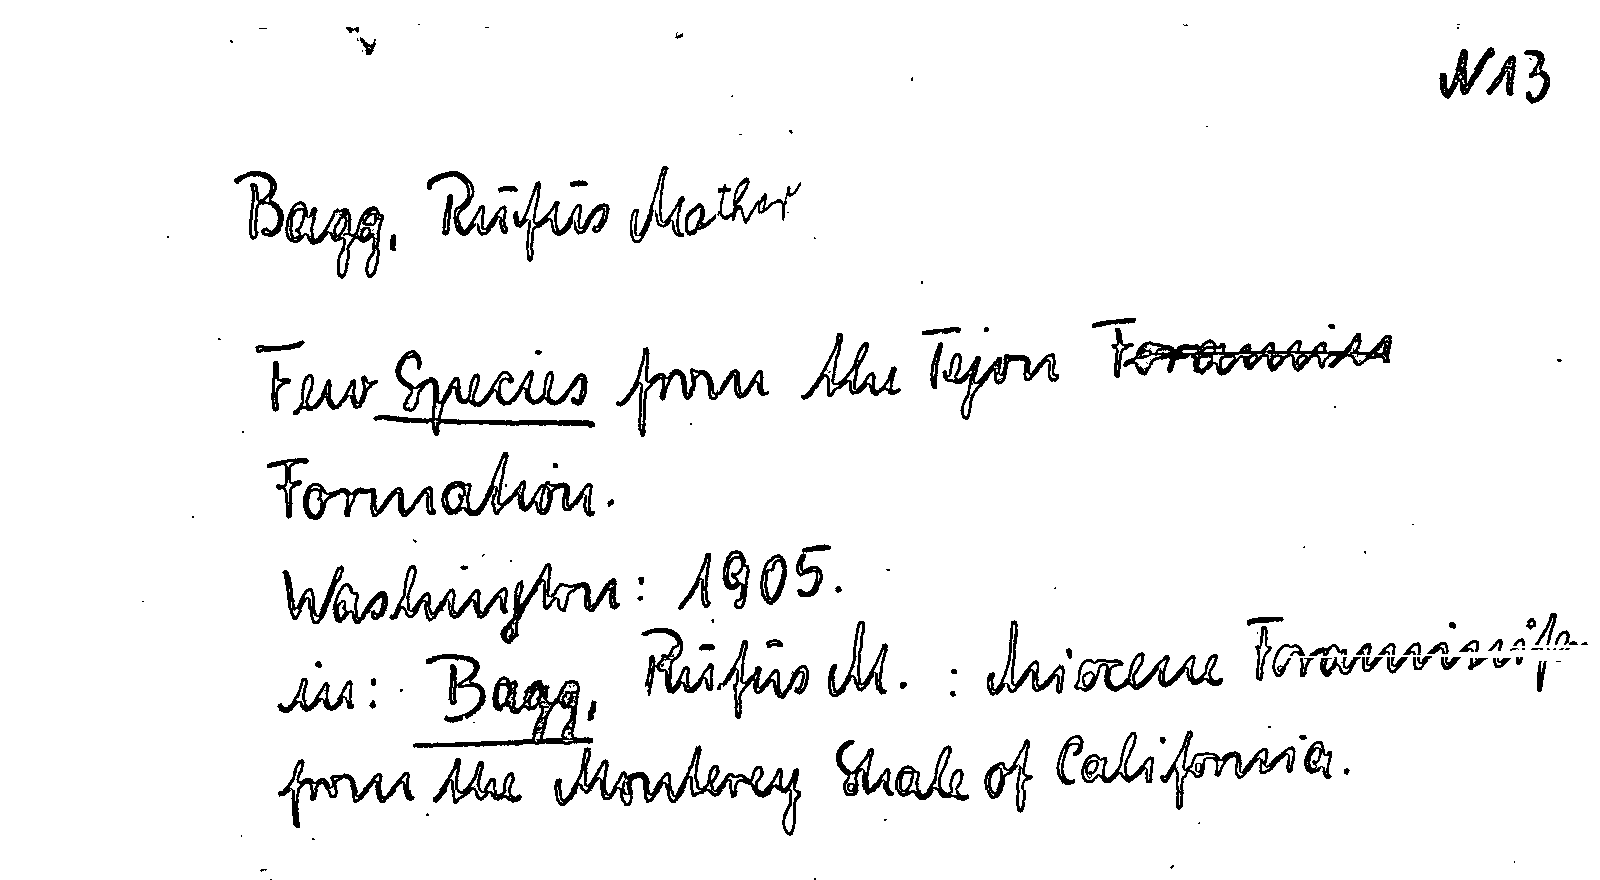 N13
Bagg, Rufus Mather
Few Species from the Tejon
Formation.
Washington: 1905.
in: Bagg, Rufus M. : Miocene Foraminif.
from the Monterey Shale of California.